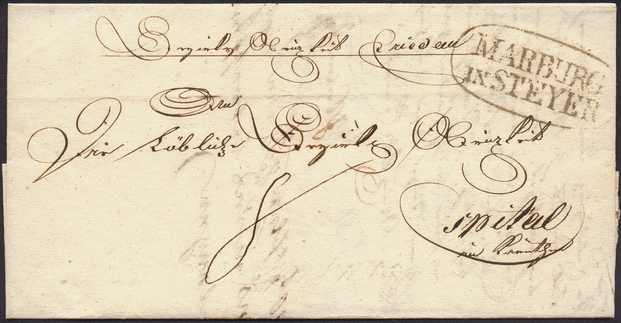 Bezirks Obrigkeit Friedau
MARBURG
IN STEYER
An
Die Löbliche Bezirks Obrigkeit
8
Spital
in